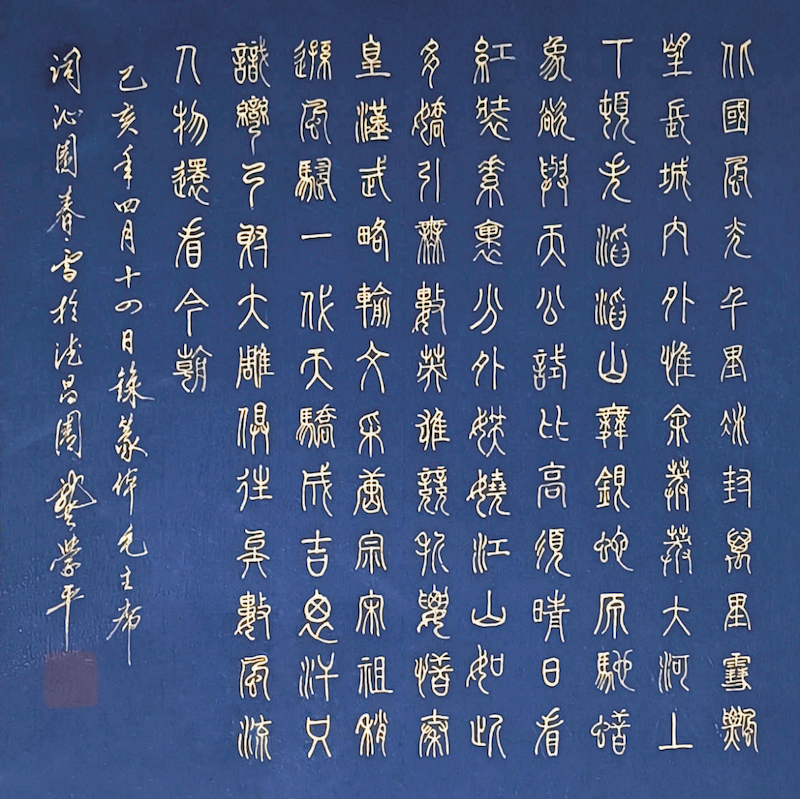 北國風光千里冰封萬里雪飄
望長城內外惟余莽莽大河上
下頓失滔滔山舞銀蛇原馳蠟
象欲與天公試比高須晴日看
紅裝素裹分外妖嬈江山如此
多嬌引無數英雄競折腰惜秦
皇漢武略輸文采唐宗宋祖稍
遜風騷一代天驕成吉思汗只
識彎弓射大雕俱往矣數風流
人物還看今朝
己亥年四月十四日錄篆悼毛主席
詞沁園春雪於法昌園 學平